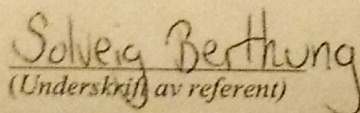 Solveig Berthung
(Underskrift av referent)